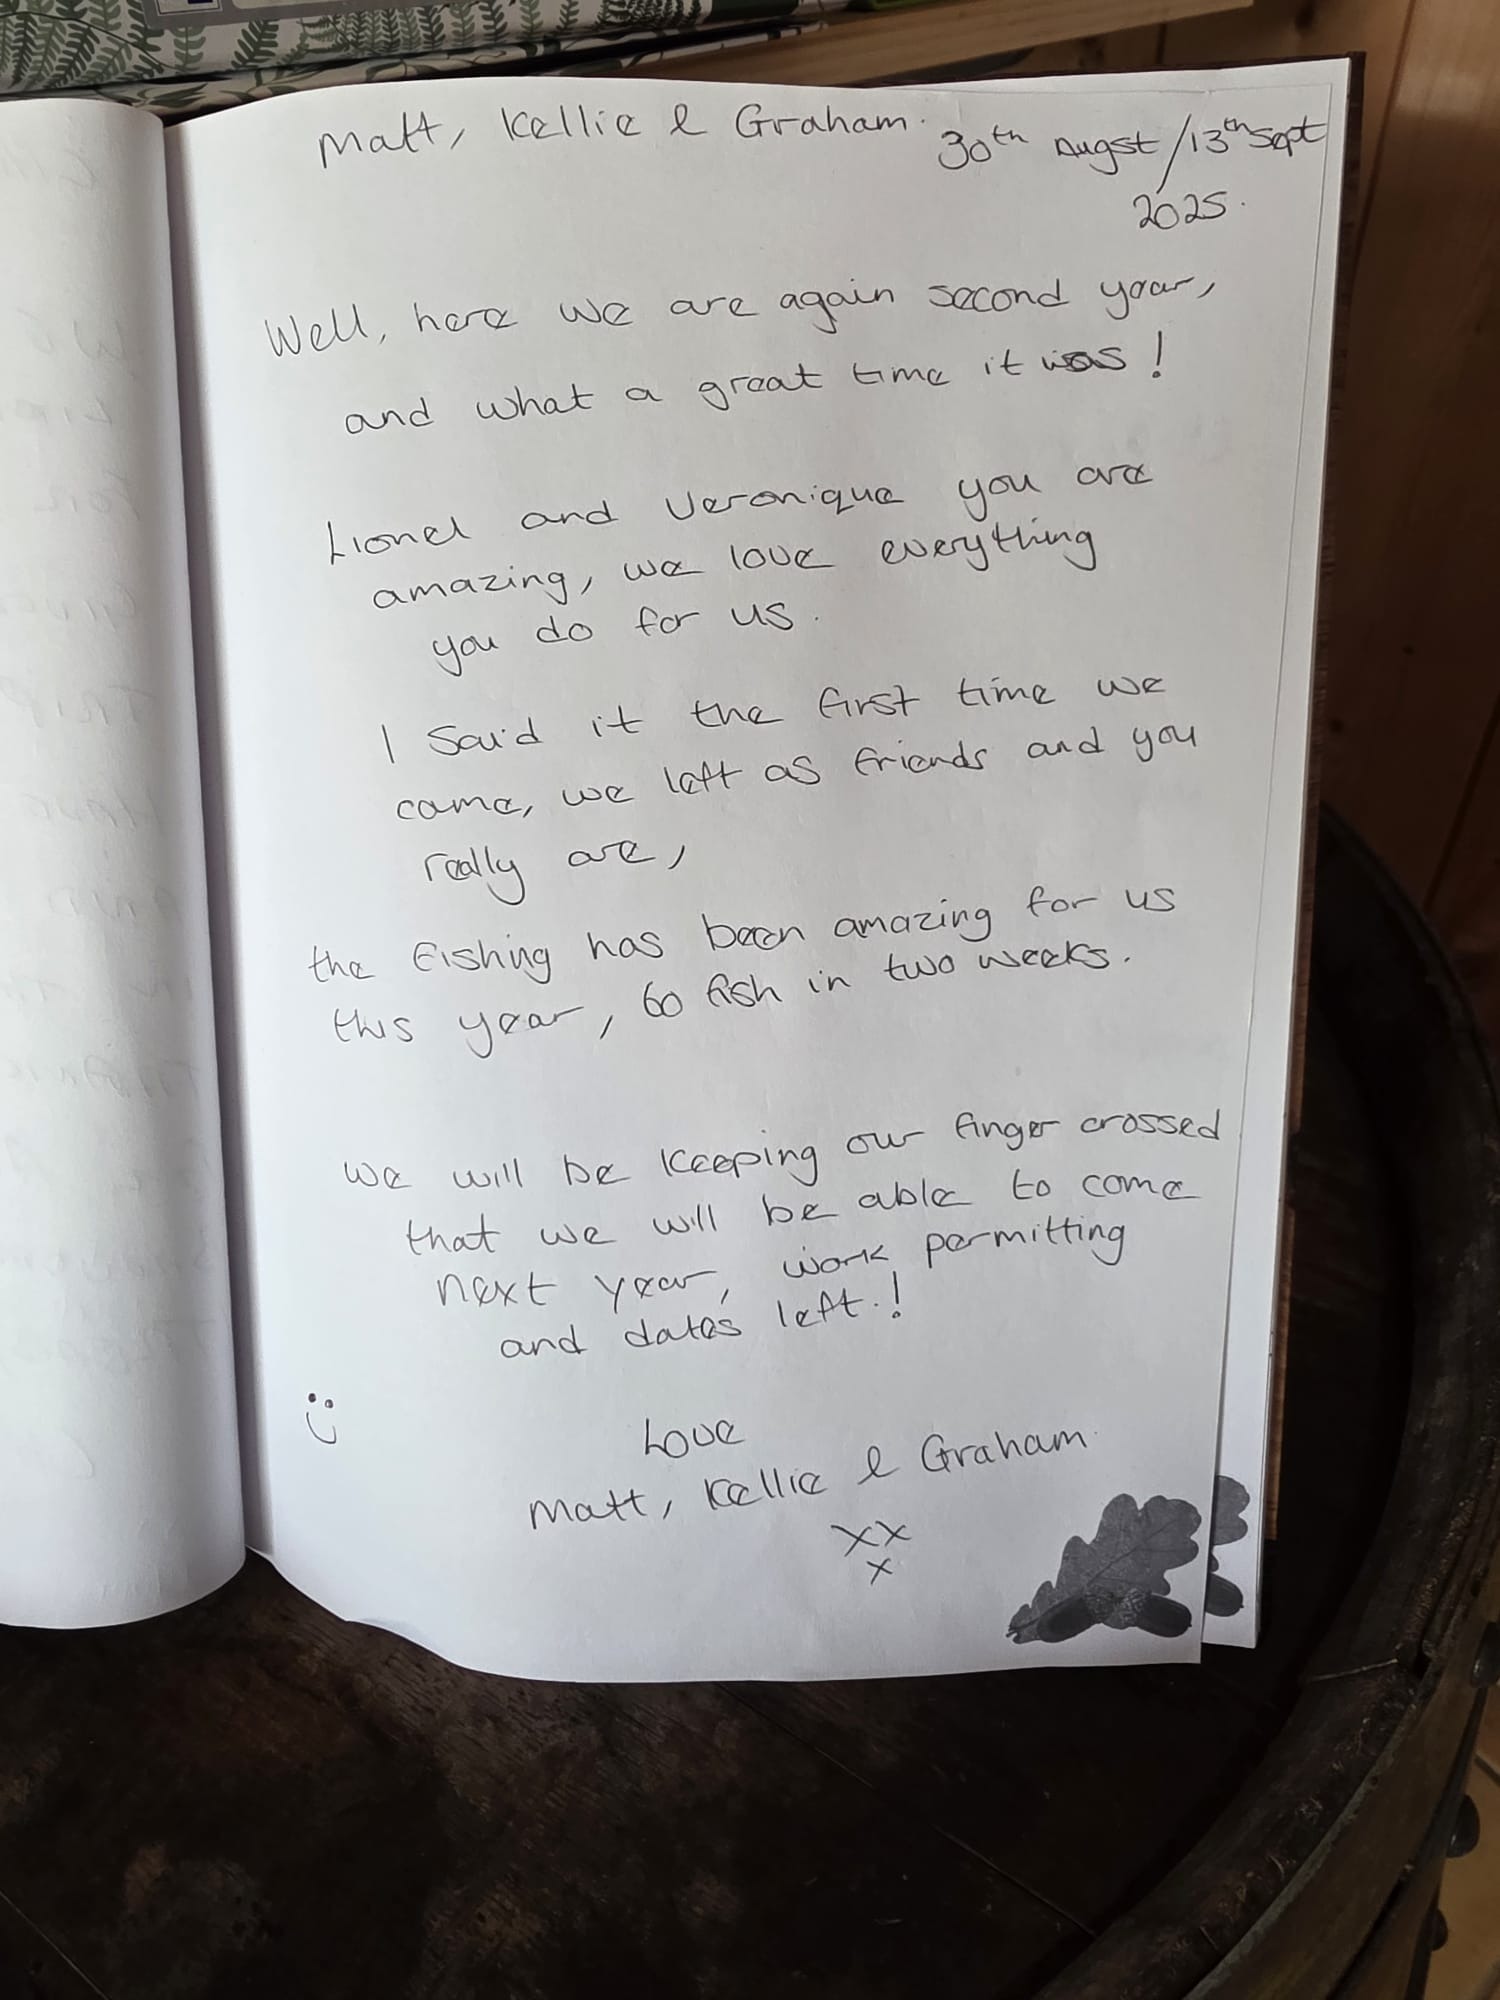 Matt, Kellie & Graham.
30th Augst/13th Sept
2025.
Well, here we are again second year,
and what a great time it was!
Lionel and Veronique you are
amazing, we love everything
you do for us.
I said it the first time we
came, we left as friends and you
really are,
the fishing has been amazing for us
this year, 60 fish in two weeks.
We will be keeping our finger crossed
that we will be able to come
next year, work permitting
and dates left.!
Love
Matt, Kellie & Graham.
xx
x